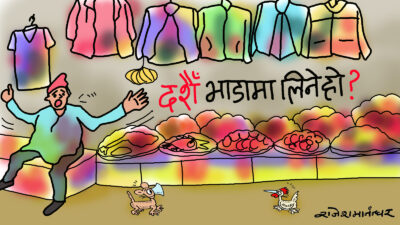 दशैँ भाडामा लिने हो ?
राजेश मानन्धर